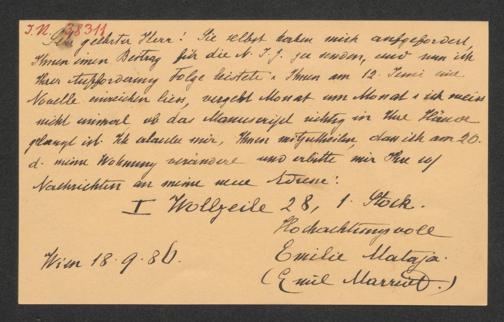 I.N. 38311
Sehr geehrter Herr! Sie selbst haben mich aufgefordert,
Ihnen einen Beitrag für die N. I. Z. zu senden, und nun ich
Ihrer Aufforderung Folge leistete u. Ihnen am 12. Juni eine
Novelle einreichen liess, vergeht Monat um Monat u. ich weiss
nicht einmal ob das Manuscript richtig in Ihre Hände
gelangt ist. Ich erlaube mir, Ihnen mitzutheilen, dass ich am 20.
d. meine Wohnung verändere und erbitte mir Ihre
Nachrichten an meine neue Adresse:
I Wollzeile 28, 1. Stock.
Hochachtungsvoll
Emilie Mataja
Wien 18. 9. 86.
(Emil Marriot.)